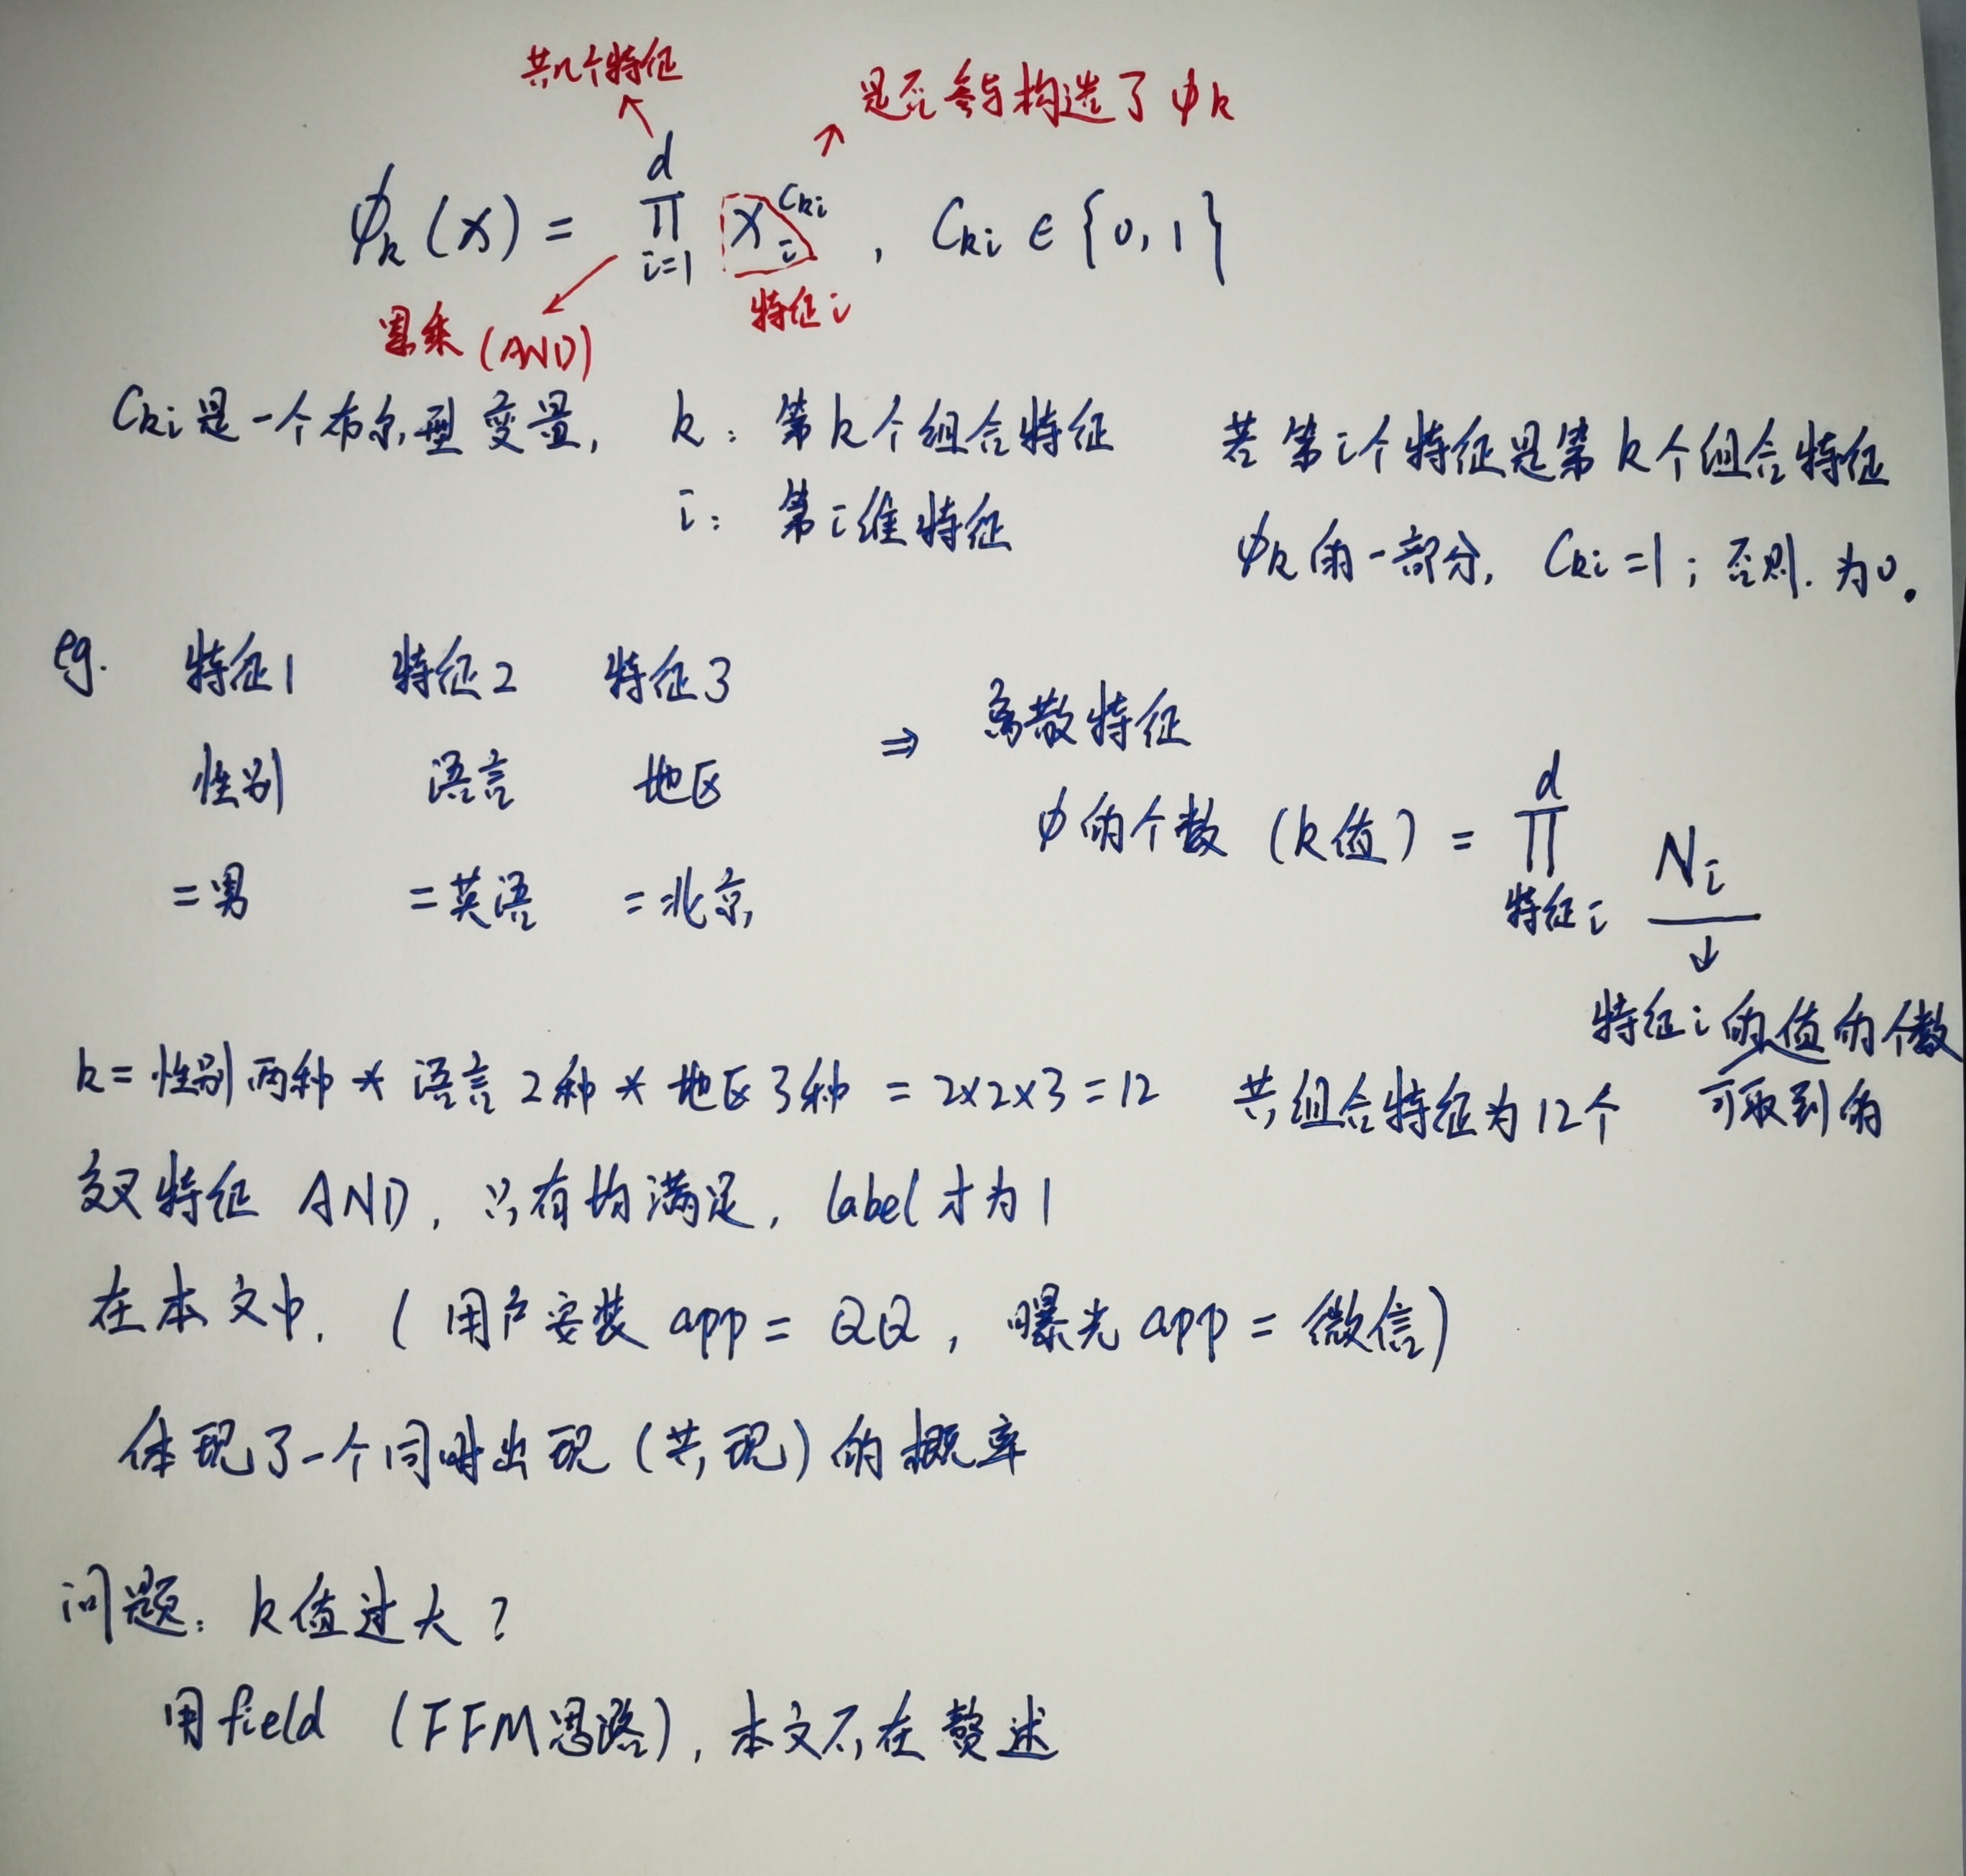 共n个特征
是否参与构造了 φk
φk(x) = ∏_{i=1}^{d} x_i^{Cki} , Cki ∈ {0, 1}
特征i
累乘 (AND)
Cki是一个布尔型变量, k: 第k个组合特征
i: 第i维特征
若第i个特征是第k个组合特征
φk的一部分, Cki=1; 否则.为0.
eg. 特征1 特征2 特征3
性别 语言 地区
=男 =英语 =北京
⇒ 离散特征
φ的个数 (k值) = ∏_{特征i}^{d} Ni
↓
特征i的值的个数
可取到的
k= 性别两种 * 语言2种 * 地区3种 = 2x2x3=12 共组合特征为12个
交叉特征 AND, 只有均满足, label才为1
在本文中, ( 用户安装app = QQ, 曝光app = 微信)
体现了一个同时出现 (共现) 的概率
问题: k值过大?
用field (FFM思路), 本文不在赘述